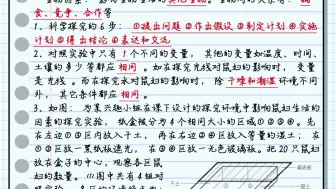 食、竞争、合作等
1、科学探究的6步：①提出问题②作出假设③制定计划④实施
计划⑤得出结论⑥表达和交流
2、对照实验中只有1个不同的变量，其他的变量如温度，时间，
土壤的多少等都应相同。如在探究光线对鼠妇的影响时，变量
是光线。而在探究水对鼠妇的影响时，除干燥和潮湿环境不同
外，其它条件都应相同。
3、如图：为某兴趣小组在课下设计的探究环境中影响鼠妇生活的
因素的探究实验，纸盒被分为4个相同大小的区域①②③④。先
在左边①③区内放入干土，再在右边②④区放入等量的湿土；在
①②区放一黑纸板遮光，在③④区放一无色玻璃板。把20只鼠妇
放在盒子的中心，观察各区鼠
妇的数量。(1)图中共有4组对
干土